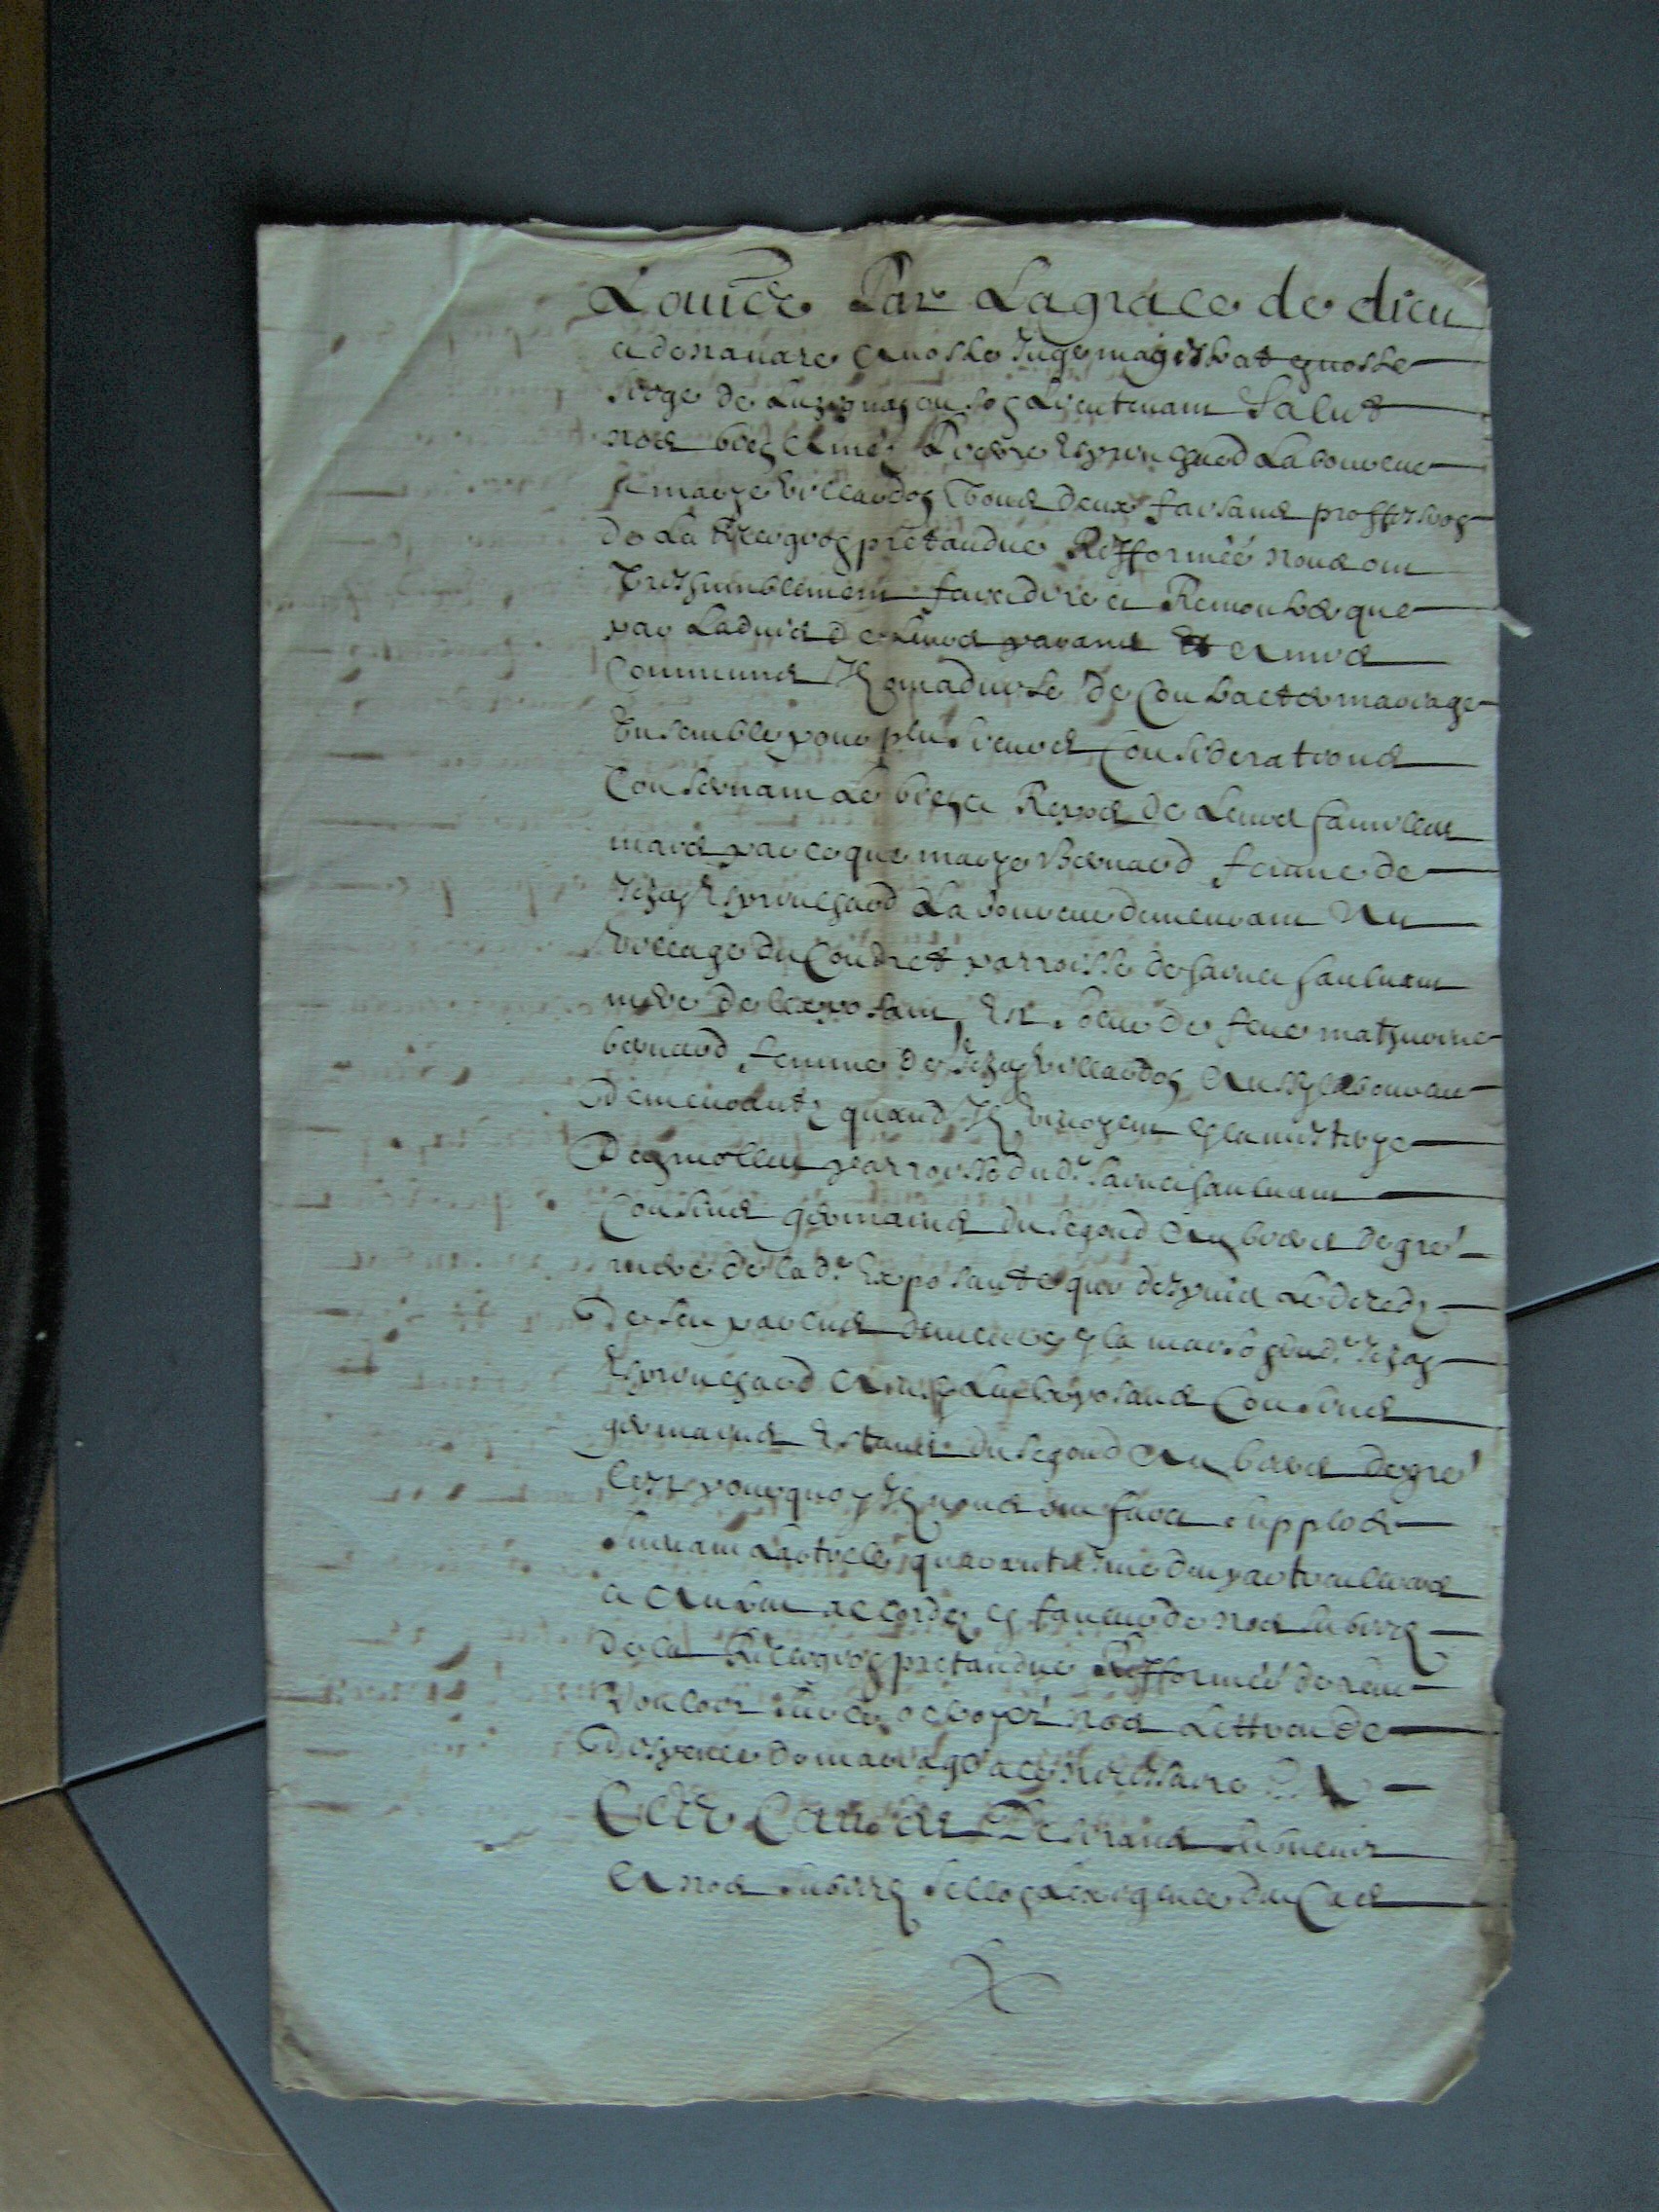 Louis Par La grace de dieu
et de navarre A nostre Juge magistrat en nostre
siege de Luzignan ou son Lieutenant Salut
nos bien Amés Pierre Esprinchard Laboureur
et marye billaudon tous deux faisans proffession
de La Relligion pretandue Refformée nous ont
tres humblement faict dire et Remonstrer que
par Ladvis de Leurs parans Et Amis
Communs Ilz ont advisé de Contracter mariage
Ensemble pour plusieurs Considerations
Consernant Le bien et Repos de Leurs familles
mais par ce que marye Bernard femme de
Jehan Esprinchard Laboureur demeurant Au
village du Coudret parroisse de
mere de lexposant Est seur de feue mathurine
bernard femme de Jehan billaudon Aussy laboureur
demeurantz quand Ilz vivoyent en la mestairye
parroisse dud.
Cousins germains du segond Au degré
mere de lad. Exposante qui despuis Le deceds
de ses parens demeure en la maison dud. Jehan
Esprinchard Ainsi Les Exposans Cousins
germains Estants du segond Au degré
Cest pourquoy Ilz nous ont faict supplier
suivant Larticle quarantiesme des particulliers
et Au leur accordez en faveur de nos subjectz
de la Relligion pretandue Refformée de leur
Vouloir sur ce octroyer nos Lettres de
dispence de mariage a ce necessaire
Cest Desirans subvenir
A nos subjectz sellon Lexigence des Cas